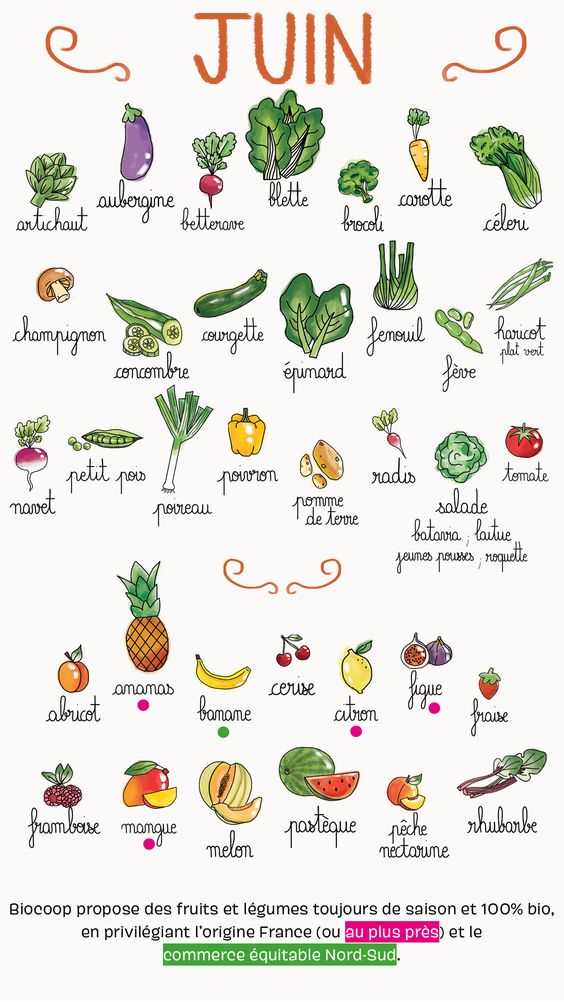 JUIN
artichaut
aubergine
betterave
blette
brocoli
carotte
céleri
champignon
concombre
courgette
épinard
fenouil
fève
haricot
plat vert
navet
petit pois
poireau
poivron
pomme
de terre
radis
salade
batavia ; laitue
jeunes pousses ; roquette
tomate
abricot
ananas
banane
cerise
citron
figue
fraise
framboise
mangue
melon
pastèque
pêche
nectarine
rhubarbe
Biocoop propose des fruits et légumes toujours de saison et 100% bio,
en privilégiant l'origine France (ou au plus près) et le
commerce équitable Nord-Sud.